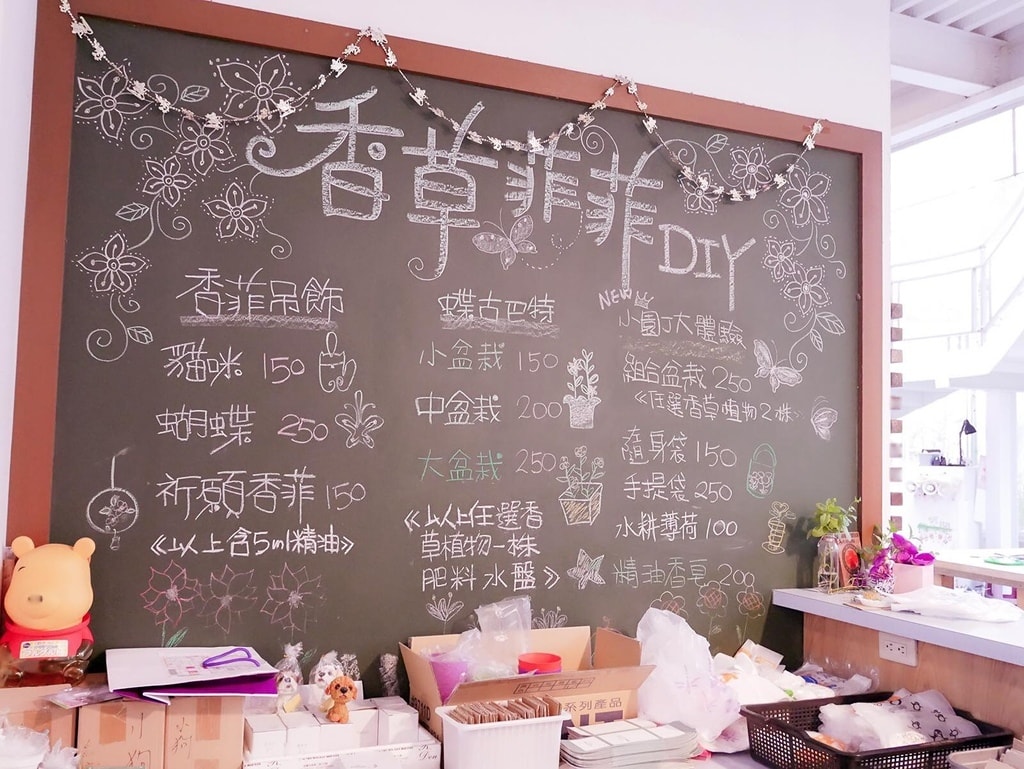 香草菲菲DIY
香菲吊飾
貓咪 150
蝴蝶 250
祈願香菲 150
《以上含5ml精油》
蝶古巴特
小盆栽 150
中盆栽 200
大盆栽 250
《以上任選香
草植物一株
肥料 水盤》
NEW
小園丁大體驗
組合盆栽 250
《任選香草植物2株
隨身袋 150
手提袋 250
水耕薄荷 100
精油香皂 200
小狗
系列產品